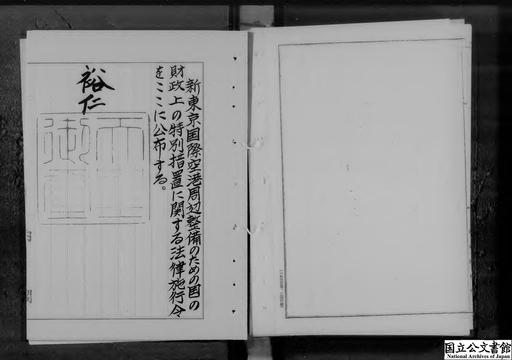 新東京国際空港周辺整備のための国の
財政上の特別措置に関する法律施行令
をここに公布する。
裕仁
国立公文書館
National Archives of Japan